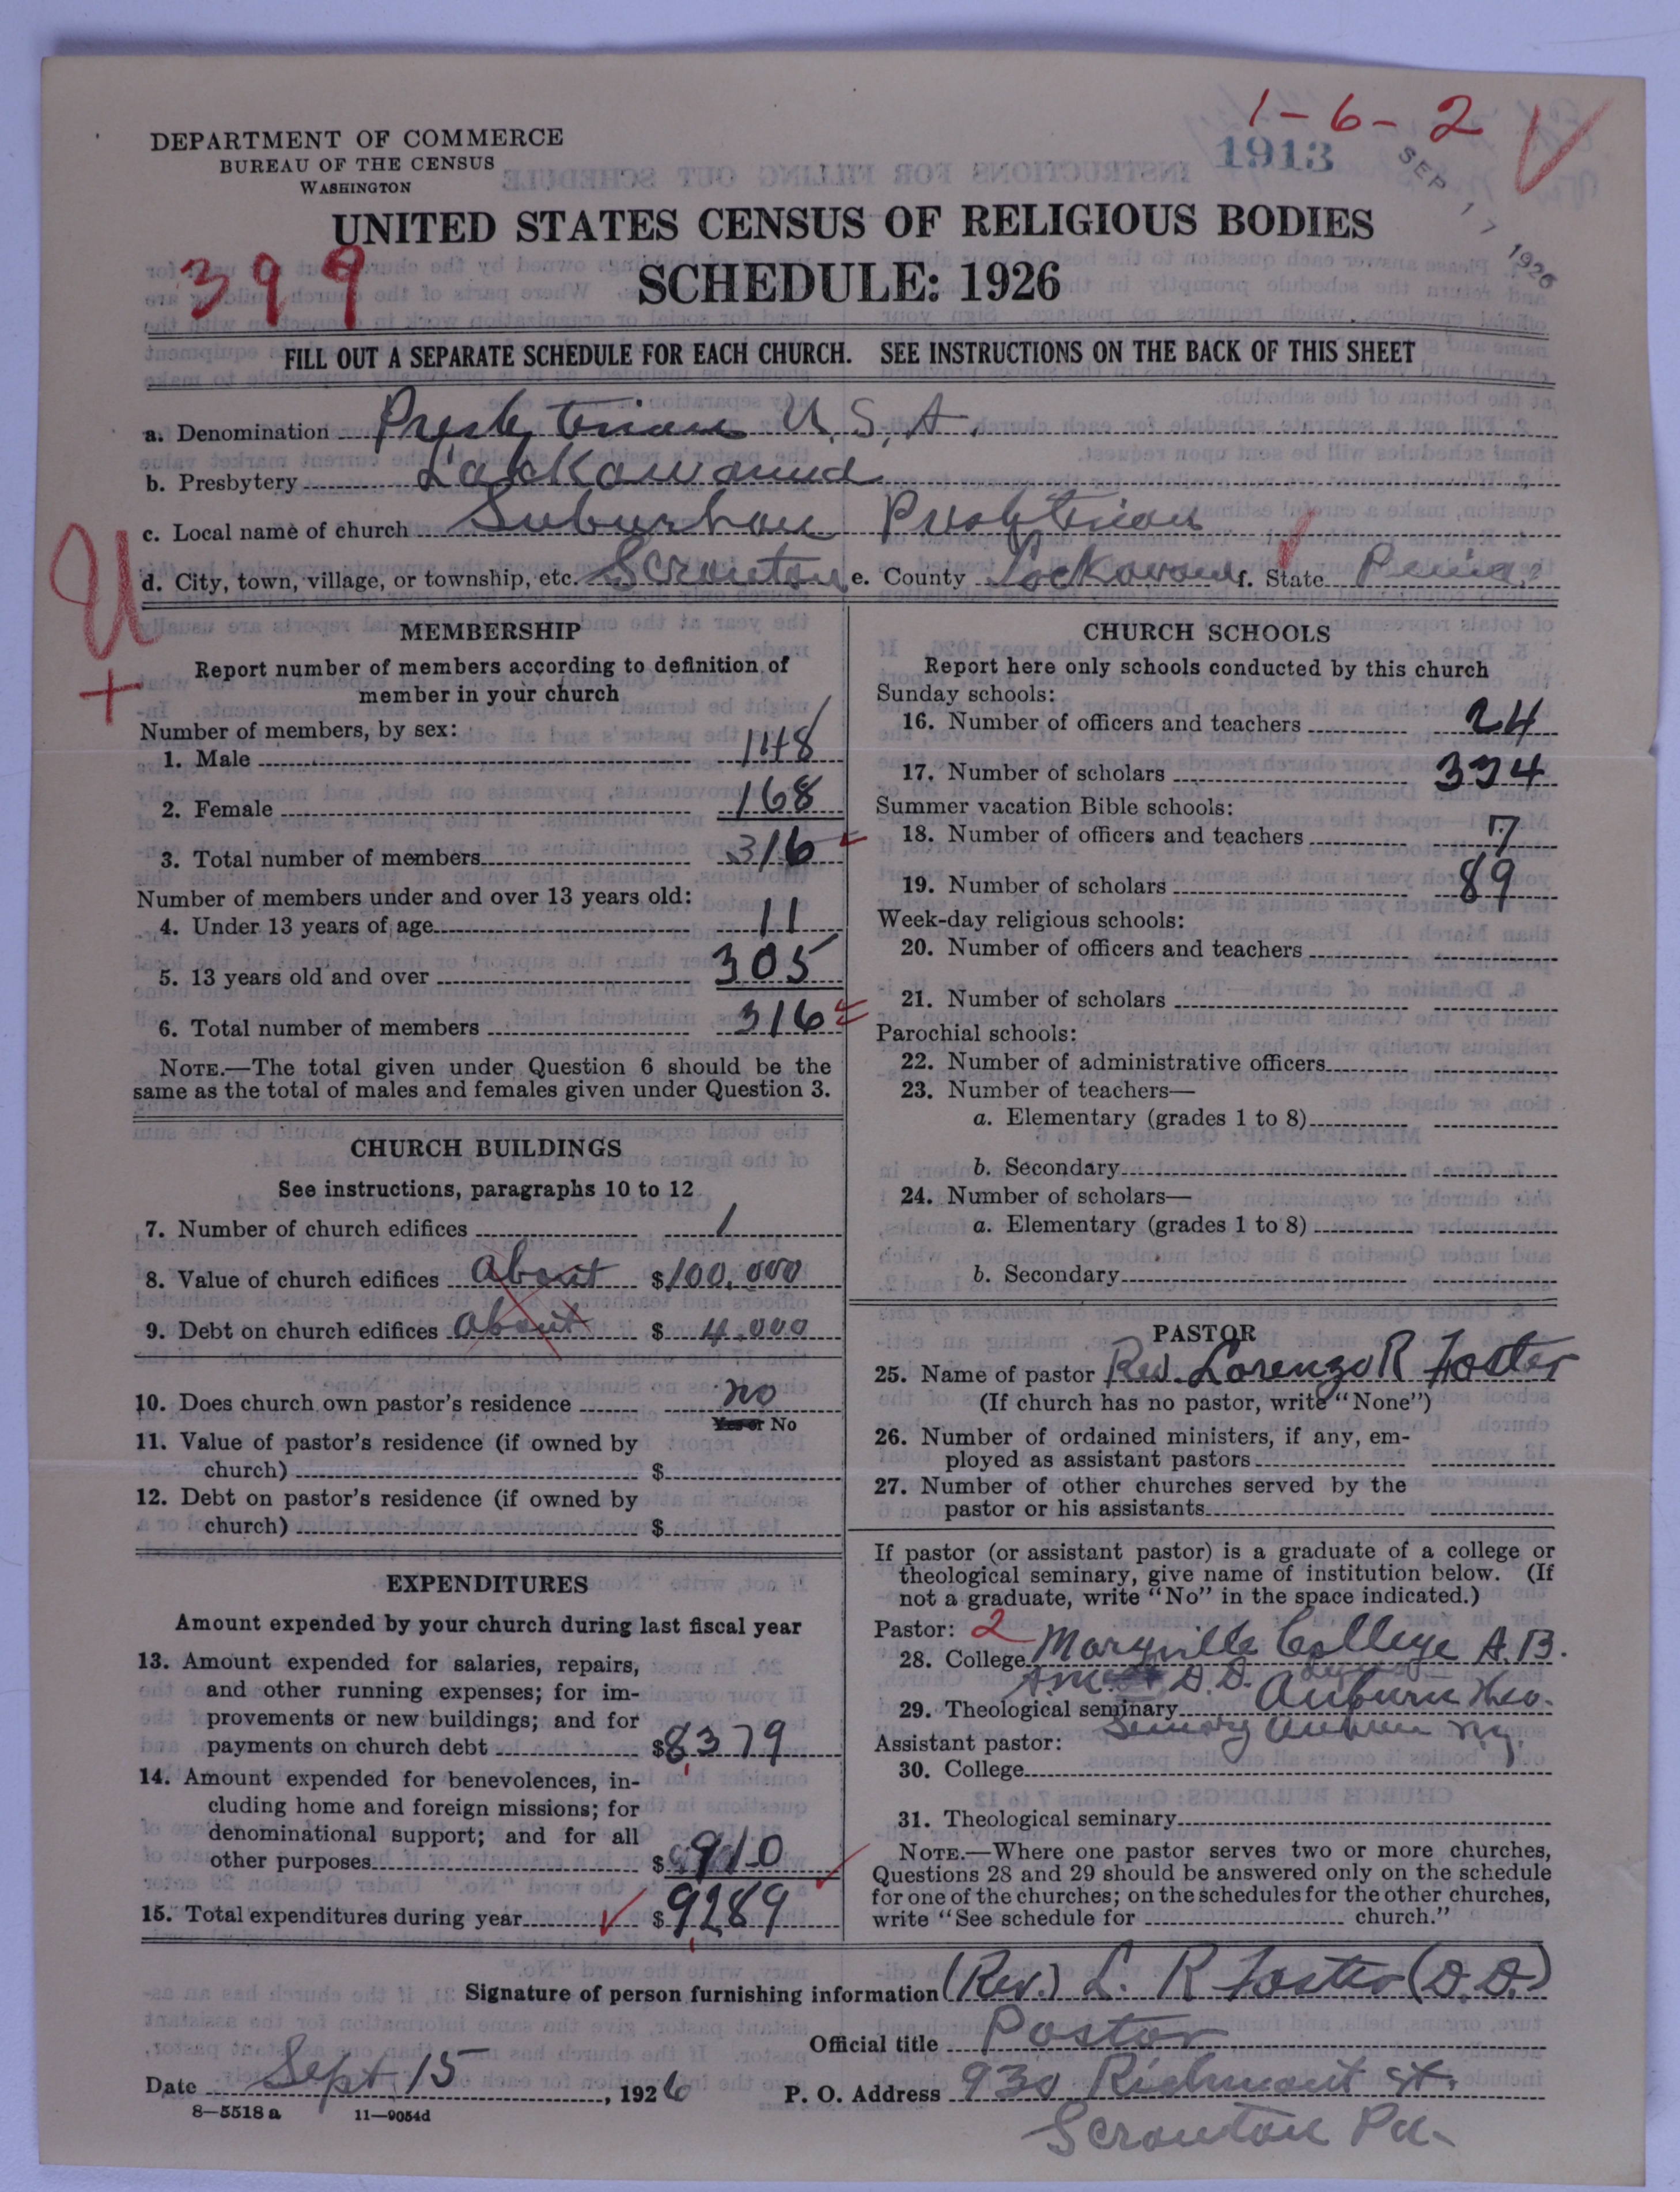 1-6-2
1913
SEP 17 1926
DEPARTMENT OF COMMERCE
BUREAU OF THE CENSUS
WASHINGTON
UNITED STATES CENSUS OF RELIGIOUS BODIES
399
SCHEDULE: 1926
FILL OUT A SEPARATE SCHEDULE FOR EACH CHURCH. SEE INSTRUCTIONS ON THE BACK OF THIS SHEET
a. Denomination Presbyterian U.S.A.
b. Presbytery Lackawanna
c. Local name of church Suburban Presbyterian
d. City, town, village, or township, etc. Scranton e. County Lackawanna f. State Penna.
U
+
MEMBERSHIP
Report number of members according to definition of
member in your church
Number of members, by sex:
1. Male 148
2. Female 168
3. Total number of members 316
Number of members under and over 13 years old:
4. Under 13 years of age 11
5. 13 years old and over 305
6. Total number of members 316
NOTE.—The total given under Question 6 should be the
same as the total of males and females given under Question 3.
CHURCH BUILDINGS
See instructions, paragraphs 10 to 12
7. Number of church edifices 1
8. Value of church edifices about $100,000
9. Debt on church edifices about $ 4,000
10. Does church own pastor's residence no
Yes or No
11. Value of pastor's residence (if owned by
church) $
12. Debt on pastor's residence (if owned by
church) $
EXPENDITURES
Amount expended by your church during last fiscal year
13. Amount expended for salaries, repairs,
and other running expenses; for im-
provements or new buildings; and for
payments on church debt $8,379
14. Amount expended for benevolences, in-
cluding home and foreign missions; for
denominational support; and for all
other purposes $910
15. Total expenditures during year $9,289
CHURCH SCHOOLS
Report here only schools conducted by this church
Sunday schools:
16. Number of officers and teachers 24
17. Number of scholars 334
Summer vacation Bible schools:
18. Number of officers and teachers 7
19. Number of scholars 89
Week-day religious schools:
20. Number of officers and teachers
21. Number of scholars
Parochial schools:
22. Number of administrative officers
23. Number of teachers—
a. Elementary (grades 1 to 8)
b. Secondary
24. Number of scholars—
a. Elementary (grades 1 to 8)
b. Secondary
PASTOR
25. Name of pastor Rev. Lorenzo R Foster
(If church has no pastor, write "None")
26. Number of ordained ministers, if any, em-
ployed as assistant pastors
27. Number of other churches served by the
pastor or his assistants
If pastor (or assistant pastor) is a graduate of a college or
theological seminary, give name of institution below. (If
not a graduate, write "No" in the space indicated.)
Pastor: 2
28. College Maryville College A.B.
A.M. D.D.
29. Theological seminary Auburn Theo.
Seminary Auburn N.Y.
Assistant pastor:
30. College
31. Theological seminary
NOTE.—Where one pastor serves two or more churches,
Questions 28 and 29 should be answered only on the schedule
for one of the churches; on the schedules for the other churches,
write "See schedule for church."
Signature of person furnishing information (Rev.) L. R Foster (D.D.)
Official title Pastor
Date Sept 15, 1926 P. O. Address 930 Richmont St.
Scranton Pa.
8—5518 a 11—9054d